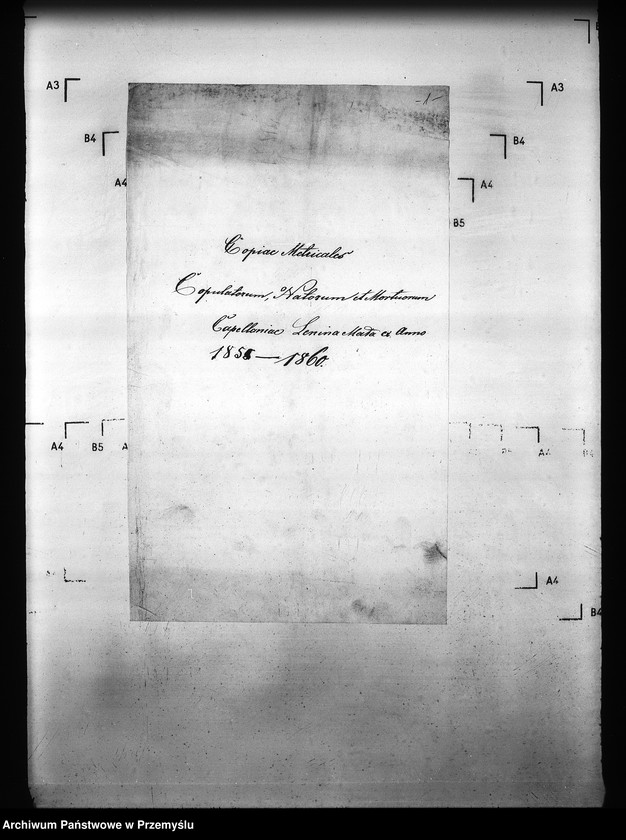 -1-
Copiae Metricales
Copulatorum, Natorum et Mortuorum
Capellaniae Lenina Mała ex Anno
1856 — 1860.
A3
A3
B4
B4
A4
A4
B5
A4
B5
A
A4
A4
B4
Archiwum Państwowe w Przemyślu